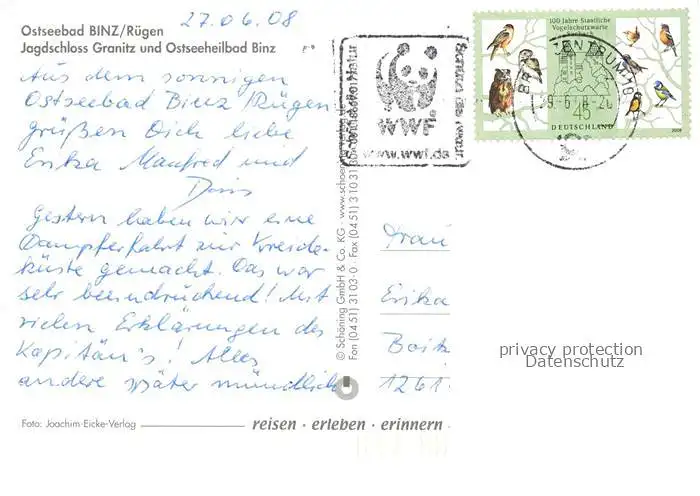 27.06.08
Ostseebad BINZ/Rügen
Jagdschloss Granitz und Ostseeheilbad Binz
Aus dem sonnigen
Ostseebad Binz/Rügen
grüßen Dich liebe
Erika Manfred und
Doris
Gestern haben wir eine
Dampferfahrt zur Kreide-
küste gemacht. Das war
sehr beeindruckend! Mit
vielen Erklärungen des
Kapitän's! Alles
andere später mündlich
Foto: Joachim-Eicke-Verlag
reisen · erleben · erinnern
© Schöning GmbH & Co. KG · www.schoe
Fon (0451) 3103-0 · Fax (0451) 31031
WWF
www.wwf.de
100 Jahre Staatliche
Vogelschutzwarte
Seebach
45
DEUTSCHLAND
2008
BRIEFZENTRUM
Frau
Erika
Boitz
1261
privacy protection
Datenschutz